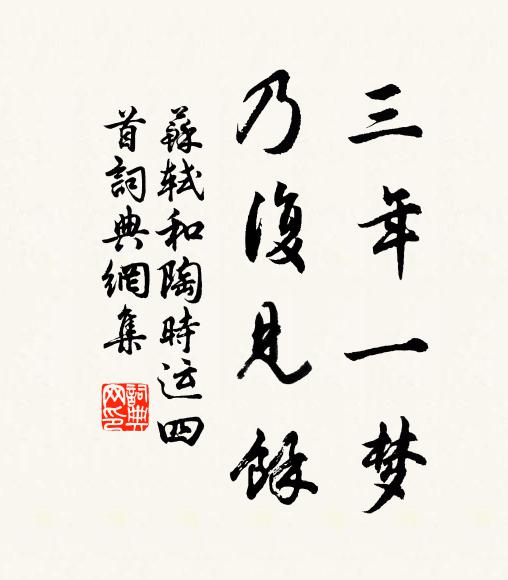 三年一梦
乃復見餘
蘇軾和陶時运四
首詞典網集
詞典
网印